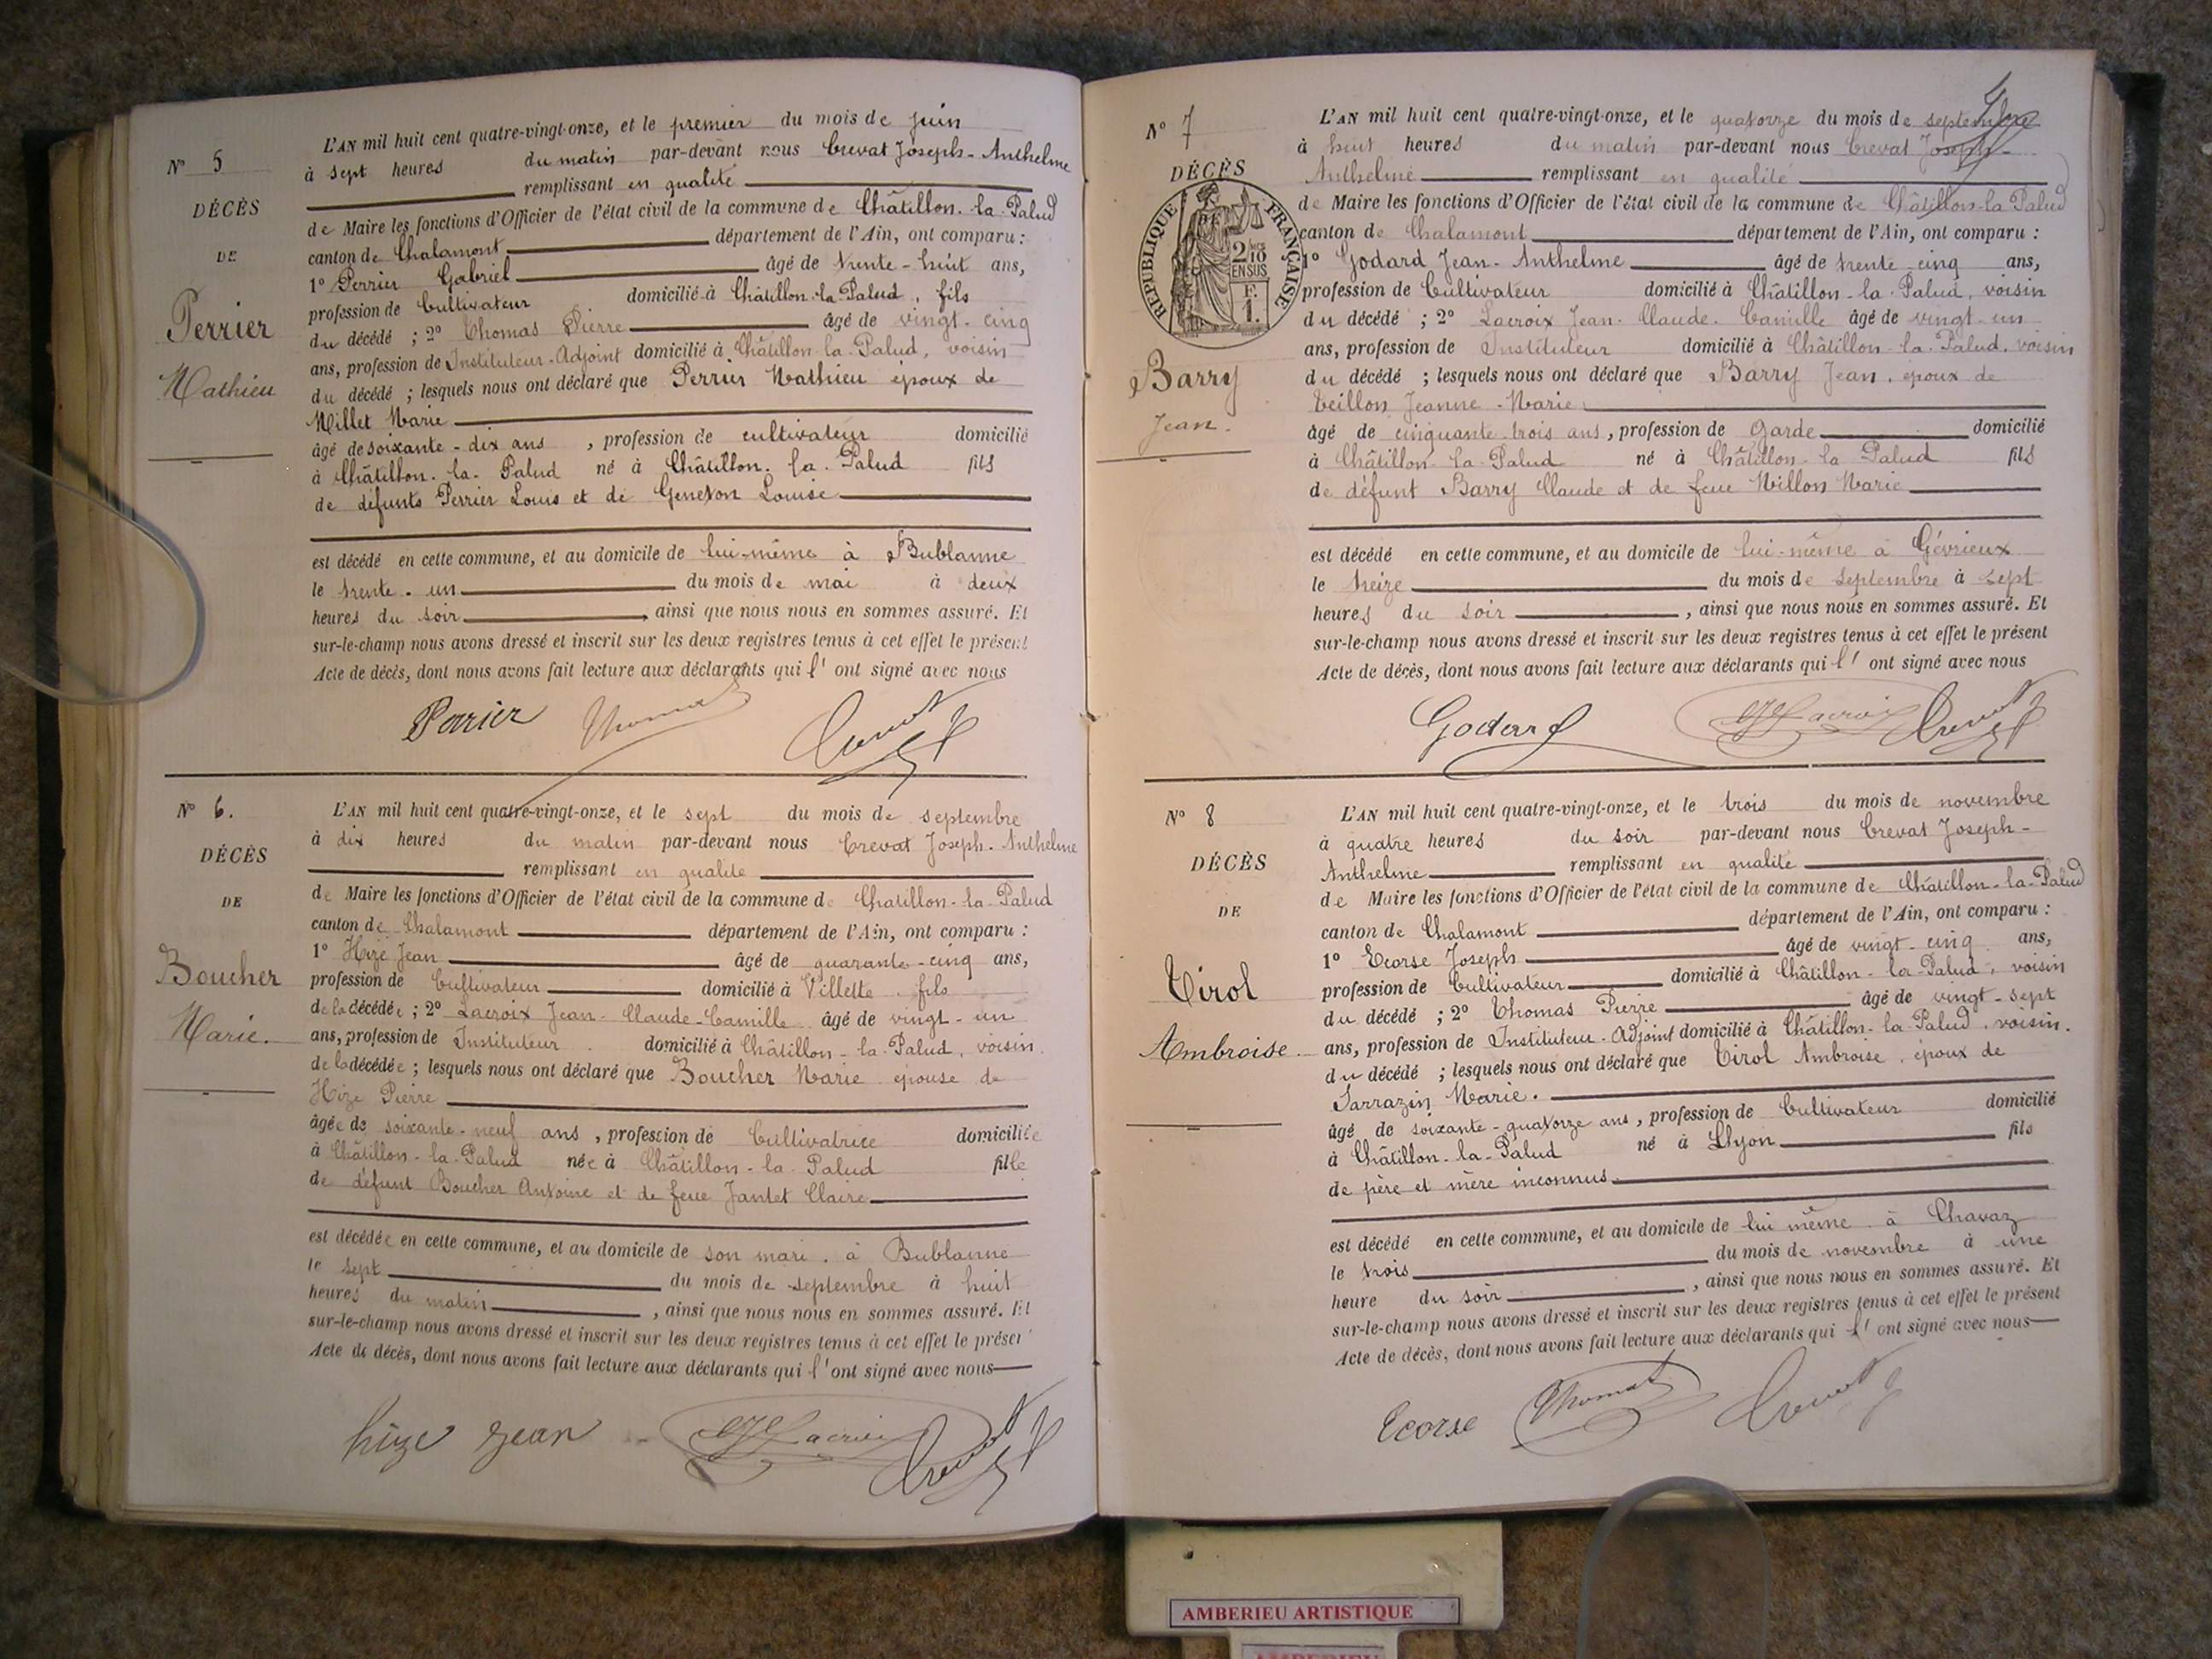 N° 5
DÉCÈS
DE
Perrier
Mathieu
L'AN mil huit cent quatre-vingt-onze, et le premier du mois de juin
à sept heures du matin par-devant nous Crevat Joseph-Anthelme
remplissant en qualité
de Maire les fonctions d'Officier de l'état civil de la commune de Châtillon-la-Palud
canton de Chalamont département de l'Ain, ont comparu :
1° Perrier Gabriel âgé de trente-huit ans,
profession de Cultivateur domicilié à Châtillon-la-Palud, fils
du décédé ; 2° Thomas Pierre âgé de vingt-cinq
ans, profession de Instituteur-Adjoint domicilié à Châtillon-la-Palud, voisin
du décédé ; lesquels nous ont déclaré que Perrier Mathieu époux de
Millet Marie
âgé de soixante-dix ans, profession de cultivateur domicilié
à Châtillon-la-Palud né à Châtillon-la-Palud fils
de défunts Perrier Louis et de Geneton Louise
est décédé en cette commune, et au domicile de lui-même à Bublanne
le trente-un du mois de mai à deux
heures du soir, ainsi que nous nous en sommes assuré. Et
sur-le-champ nous avons dressé et inscrit sur les deux registres tenus à cet effet le présent
Acte de décès, dont nous avons fait lecture aux déclarants qui l'ont signé avec nous
Perrier Thomas Crevat
N° 6.
DÉCÈS
DE
Boucher
Marie.
L'AN mil huit cent quatre-vingt-onze, et le sept du mois de septembre
à dix heures du matin par-devant nous Crevat Joseph-Anthelme
remplissant en qualité
de Maire les fonctions d'Officier de l'état civil de la commune de Châtillon-la-Palud
canton de Chalamont département de l'Ain, ont comparu :
1° Hize Jean âgé de quarante-cinq ans,
profession de Cultivateur domicilié à Villette, fils
de la décédée ; 2° Lacroix Jean-Claude-Camille âgé de vingt-un
ans, profession de Instituteur domicilié à Châtillon-la-Palud, voisin
de la décédée ; lesquels nous ont déclaré que Boucher Marie épouse de
Hize Pierre
âgée de soixante-neuf ans, profession de Cultivatrice domiciliée
à Châtillon-la-Palud née à Châtillon-la-Palud fille
de défunt Boucher Antoine et de feue Jantet Claire
est décédée en cette commune, et au domicile de son mari, à Bublanne
le sept du mois de septembre à huit
heures du matin, ainsi que nous nous en sommes assuré. Et
sur-le-champ nous avons dressé et inscrit sur les deux registres tenus à cet effet le présent
Acte de décès, dont nous avons fait lecture aux déclarants qui l'ont signé avec nous
hize jean Lacroix Crevat
N° 7
DÉCÈS
RÉPUBLIQUE FRANÇAISE
2/10 EN SUS
F. 1.
Barry
Jean.
L'AN mil huit cent quatre-vingt-onze, et le quatorze du mois de septembre
à huit heures du matin par-devant nous Crevat Joseph-
Anthelme remplissant en qualité
de Maire les fonctions d'Officier de l'état civil de la commune de Châtillon-la-Palud
canton de Chalamont département de l'Ain, ont comparu :
1° Godard Jean-Anthelme âgé de trente cinq ans,
profession de Cultivateur domicilié à Châtillon-la-Palud, voisin
du décédé ; 2° Lacroix Jean-Claude-Camille âgé de vingt-un
ans, profession de Instituteur domicilié à Châtillon-la-Palud, voisin
du décédé ; lesquels nous ont déclaré que Barry Jean, époux de
Teillon Jeanne-Marie
âgé de cinquante-trois ans, profession de Garde domicilié
à Châtillon-la-Palud né à Châtillon-la-Palud fils
de défunt Barry Claude et de feue Millon Marie
est décédé en cette commune, et au domicile de lui-même à Gévrieux
le treize du mois de septembre à sept
heures du soir, ainsi que nous nous en sommes assuré. Et
sur-le-champ nous avons dressé et inscrit sur les deux registres tenus à cet effet le présent
Acte de décès, dont nous avons fait lecture aux déclarants qui l'ont signé avec nous
Godard Lacroix Crevat
N° 8
DÉCÈS
DE
Tirol
Ambroise.
L'AN mil huit cent quatre-vingt-onze, et le trois du mois de novembre
à quatre heures du soir par-devant nous Crevat Joseph-
Anthelme remplissant en qualité
de Maire les fonctions d'Officier de l'état civil de la commune de Châtillon-la-Palud
canton de Chalamont département de l'Ain, ont comparu :
1° Ecorse Joseph âgé de vingt-cinq ans,
profession de Cultivateur domicilié à Châtillon-la-Palud, voisin
du décédé ; 2° Thomas Pierre âgé de vingt-sept
ans, profession de Instituteur-Adjoint domicilié à Châtillon-la-Palud, voisin.
du décédé ; lesquels nous ont déclaré que Tirol Ambroise, époux de
Sarrazin Marie.
âgé de soixante-quatorze ans, profession de Cultivateur domicilié
à Châtillon-la-Palud né à Lyon fils
de père et mère inconnus.
est décédé en cette commune, et au domicile de lui même à Chavaz
le trois du mois de novembre à une
heure du soir, ainsi que nous nous en sommes assuré. Et
sur-le-champ nous avons dressé et inscrit sur les deux registres tenus à cet effet le présent
Acte de décès, dont nous avons fait lecture aux déclarants qui l'ont signé avec nous
Ecorse Thomas Crevat
AMBERIEU ARTISTIQUE
AMBERIEU